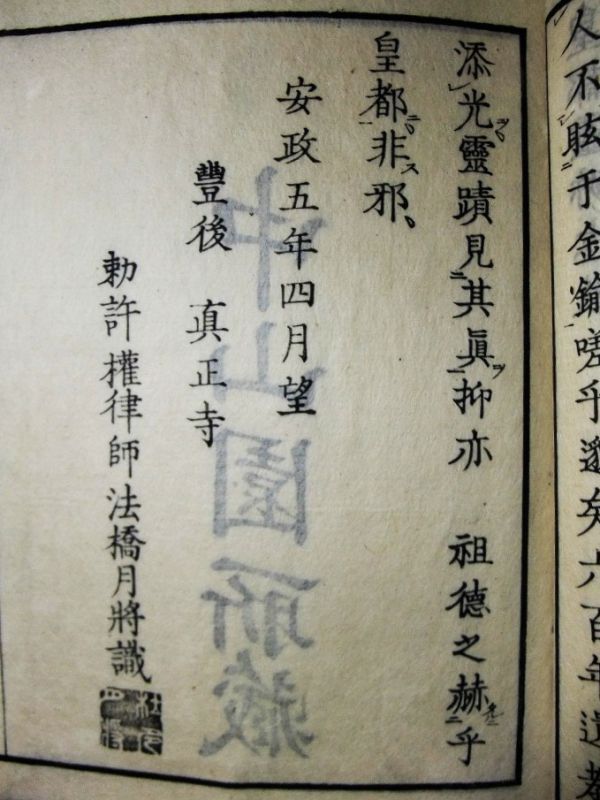 人不眩于金鍮嗟乎邈矣六百年遺教
添光靈蹟見其眞抑亦 祖德之赫乎
皇都非邪
安政五年四月望
豐後 真正寺
勅許權律師法橋月將識
中山園所藏